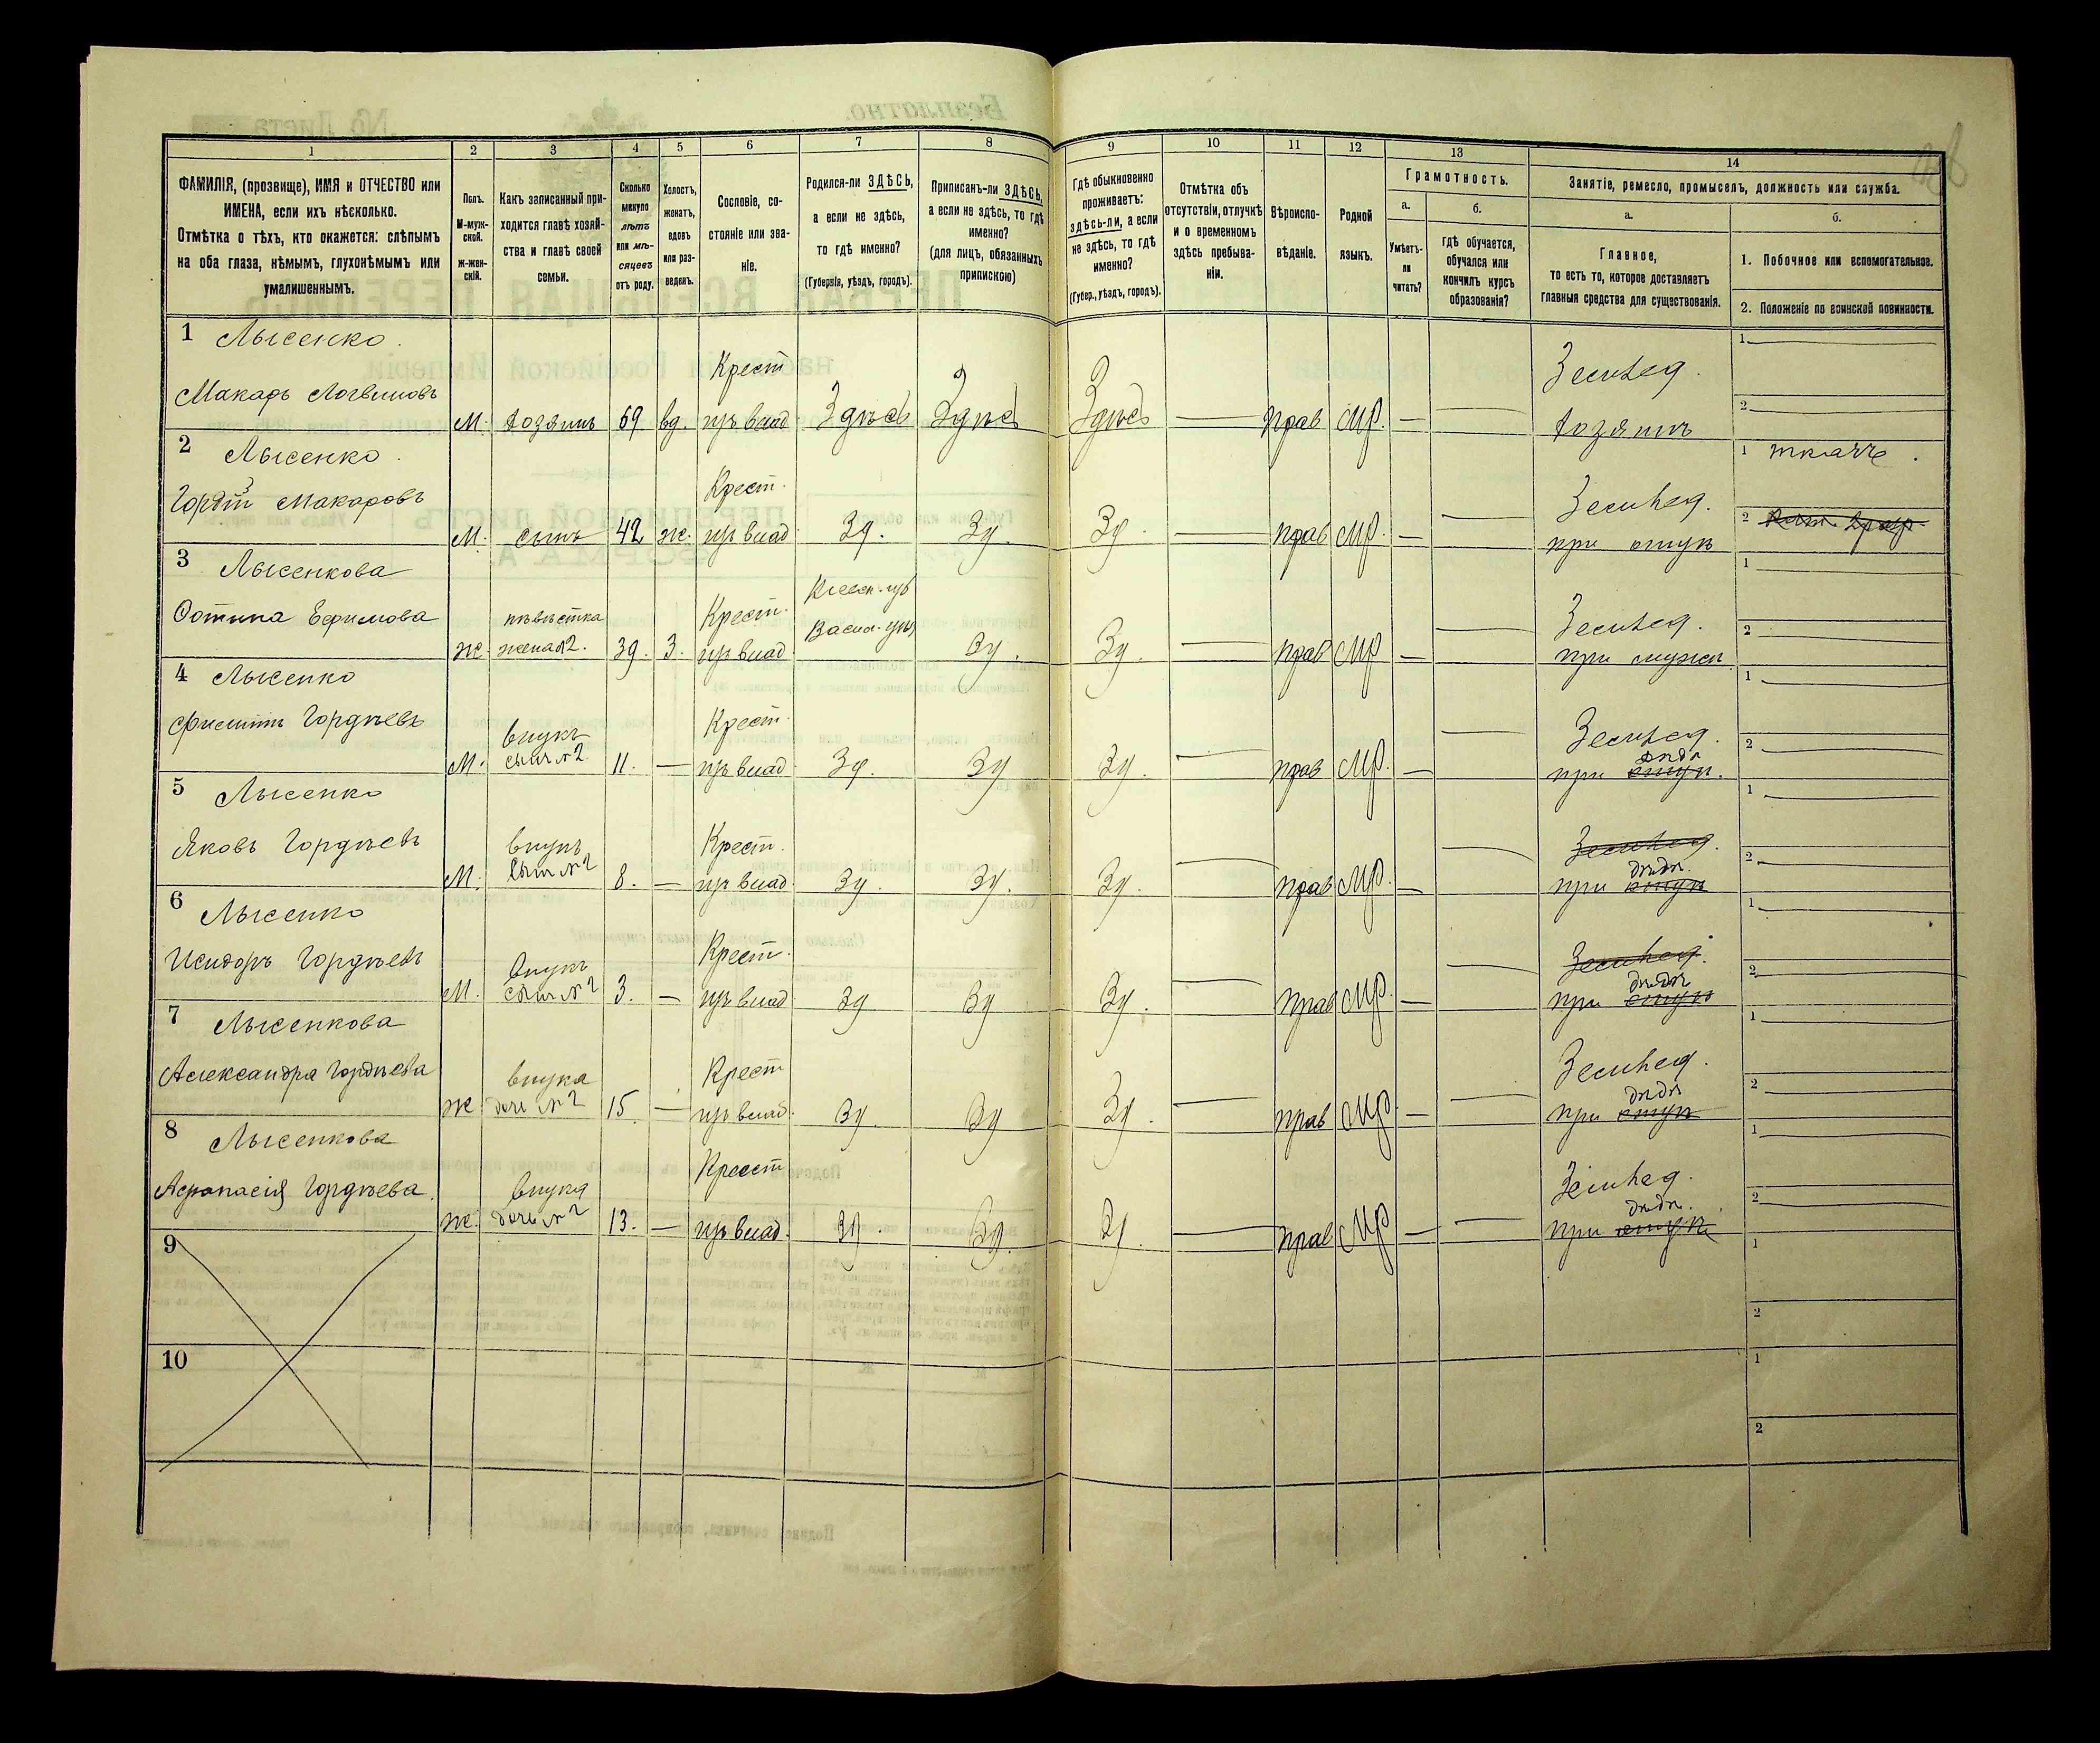 1
2
3
4
5
6
7
8
9
10
11
12
13
14
ФАМИЛІЯ, (прозвище), ИМЯ и ОТЧЕСТВО или
ИМЕНА, если ихъ нѣсколько.
Отмѣтка о тѣхъ, кто окажется: слѣпымъ
на оба глаза, нѣмымъ, глухонѣмымъ или
умалишеннымъ.
Полъ.
М-муж-
ской.
ж-жен-
скій.
Какъ записанный при-
ходится главѣ хозяй-
ства и главѣ своей
семьи.
Сколько
минуло
лѣтъ
или мѣ-
сяцевъ
отъ роду.
Холостъ,
женатъ,
вдовъ
или раз-
веденъ.
Сословіе, со-
стояніе или зва-
ніе.
Родился-ли ЗДѢСЬ,
а если не здѣсь,
то гдѣ именно?
(Губернія, уѣздъ, городъ).
Приписанъ-ли ЗДѢСЬ,
а если не здѣсь, то гдѣ
именно?
(для лицъ, обязанныхъ
припискою)
Гдѣ обыкновенно
проживаетъ:
здѣсь-ли, а если
не здѣсь, то гдѣ
именно?
(Губер., уѣздъ, городъ).
Отмѣтка объ
отсутствіи, отлучкѣ
и о временномъ
здѣсь пребыва-
ніи.
Вѣроиспо-
вѣданіе.
Родной
языкъ.
Грамотность.
а.
Умѣетъ-
ли
читать?
б.
гдѣ обучается,
обучался или
кончилъ курсъ
образованія?
Занятіе, ремесло, промыселъ, должность или служба.
а.
Главное,
то есть то, которое доставляетъ
главныя средства для существованія.
б.
1. Побочное или вспомогательное.
2. Положеніе по воинской повинности.
1 Лысенко.
Макаръ Логвиновъ
М. хозяинъ 69 вд. Крест
изъ влад Здѣсь Здѣсь Здѣсь — прав МР. — — Землед.
хозяинъ
1 —
2 —
2 Лысенко.
Гордѣй Макаровъ
М. сынъ 42 ж. Крест.
изъ влад Зд. Зд. Зд. — прав МР. — — Землед.
при отцѣ
1 ткачъ.
2
3 Лысенкова
Фотина Ефимова
ж невѣстка
жена №2. 39. З. Крест.
изъ влад Киевск. губ
Васил. уѣз Зд. Зд. — прав МР — — Землед.
при мужѣ
1 —
2 —
4 Лысенко
Филиппъ Гордѣевъ
М. внукъ
сынъ №2 11. — Крест.
изъ влад Зд. Зд Зд. — прав МР. — — Землед.
при отцѣ дѣдѣ.
1 —
2 —
5 Лысенко
Яковъ Гордѣевъ
М. внукъ
сынъ №2 8. — Крест.
изъ влад Зд. Зд. Зд. — прав МР. — — Землед.
при отцѣ дѣдѣ.
1 —
2 —
6 Лысенко
Исидоръ Гордѣевъ
М. внукъ
сынъ №2 3. — Крест.
изъ влад Зд Зд Зд. — прав МР. — — Землед.
при отцѣ дѣдѣ
1 —
2 —
7 Лысенкова
Александра Гордѣева
ж внука
дочь №2 15 — Крест
изъ влад. Зд. Зд Зд. — прав МР. — — Землед.
при отцѣ дѣдѣ
1 —
2 —
8 Лысенкова
Афанасія Гордѣева.
ж. внука
дочь №2 13. — Крест
изъ влад. Зд. Зд. Зд. — прав МР — — Землед.
при отцѣ дѣдѣ.
1 —
2 —
9
1
2
10
1
2